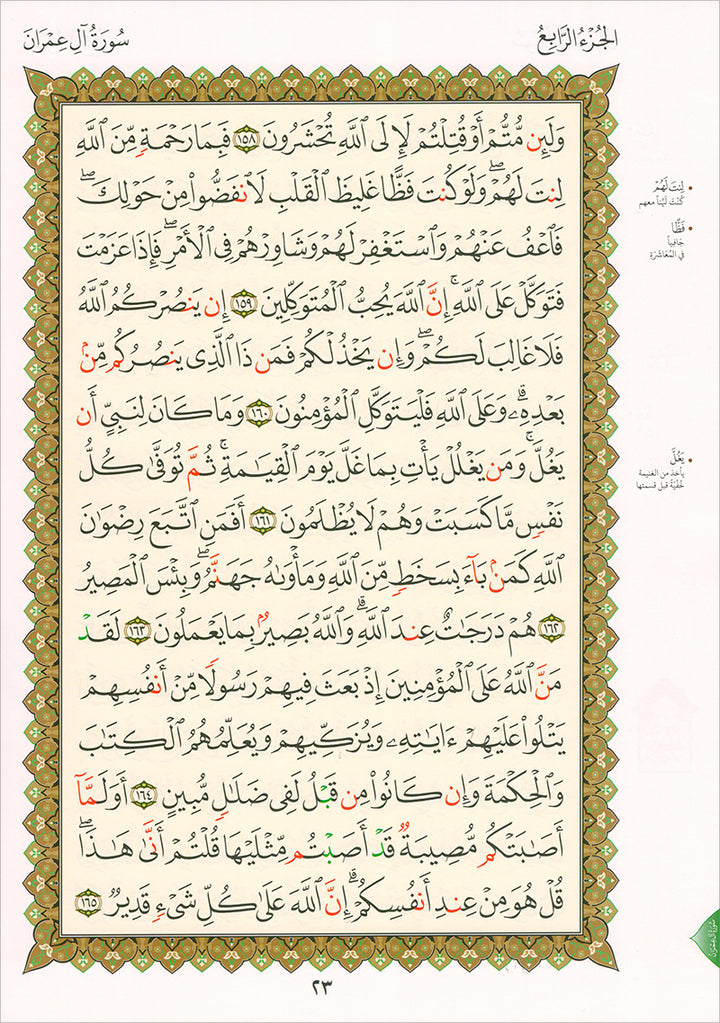 الجُزْءُ الرَّابِعُ
سُورَةُ آلِ عِمْرَانَ
وَلَئِن مُّتُّمْ أَوْ قُتِلْتُمْ لَإِلَى ٱللَّهِ تُحْشَرُونَ ١٥٨ فَبِمَا رَحْمَةٍ مِّنَ ٱللَّهِ
لِنتَ لَهُمْ ۖ وَلَوْ كُنتَ فَظًّا غَلِيظَ ٱلْقَلْبِ لَٱنفَضُّوا۟ مِنْ حَوْلِكَ ۖ
فَٱعْفُ عَنْهُمْ وَٱسْتَغْفِرْ لَهُمْ وَشَاوِرْهُمْ فِى ٱلْأَمْرِ ۖ فَإِذَا عَزَمْتَ
فَتَوَكَّلْ عَلَى ٱللَّهِ ۚ إِنَّ ٱللَّهَ يُحِبُّ ٱلْمُتَوَكِّلِينَ ١٥٩ إِن يَنصُرْكُمُ ٱللَّهُ
فَلَا غَالِبَ لَكُمْ ۖ وَإِن يَخْذُلْكُمْ فَمَن ذَا ٱلَّذِى يَنصُرُكُم مِّنۢ
بَعْدِهِۦ ۗ وَعَلَى ٱللَّهِ فَلْيَتَوَكَّلِ ٱلْمُؤْمِنُونَ ١٦٠ وَمَا كَانَ لِنَبِىٍّ أَن
يَغُلَّ ۚ وَمَن يَغْلُلْ يَأْتِ بِمَا غَلَّ يَوْمَ ٱلْقِيَـٰمَةِ ۚ ثُمَّ تُوَفَّىٰ كُلُّ
نَفْسٍ مَّا كَسَبَتْ وَهُمْ لَا يُظْلَمُونَ ١٦١ أَفَمَنِ ٱتَّبَعَ رِضْوَٰنَ
ٱللَّهِ كَمَنۢ بَآءَ بِسَخَطٍ مِّنَ ٱللَّهِ وَمَأْوَىٰهُ جَهَنَّمُ ۚ وَبِئْسَ ٱلْمَصِيرُ
١٦٢ هُمْ دَرَجَـٰتٌ عِندَ ٱللَّهِ ۗ وَٱللَّهُ بَصِيرٌۢ بِمَا يَعْمَلُونَ ١٦٣ لَقَدْ
مَنَّ ٱللَّهُ عَلَى ٱلْمُؤْمِنِينَ إِذْ بَعَثَ فِيهِمْ رَسُولًا مِّنْ أَنفُسِهِمْ
يَتْلُوا۟ عَلَيْهِمْ ءَايَـٰتِهِۦ وَيُزَكِّيهِمْ وَيُعَلِّمُهُمُ ٱلْكِتَـٰبَ
وَٱلْحِكْمَةَ وَإِن كَانُوا۟ مِن قَبْلُ لَفِى ضَلَـٰلٍ مُّبِينٍ ١٦٤ أَوَلَمَّآ
أَصَـٰبَتْكُم مُّصِيبَةٌ قَدْ أَصَبْتُم مِّثْلَيْهَا قُلْتُمْ أَنَّىٰ هَـٰذَا ۖ
قُلْ هُوَ مِنْ عِندِ أَنفُسِكُمْ ۗ إِنَّ ٱللَّهَ عَلَىٰ كُلِّ شَىْءٍ قَدِيرٌ ١٦٥
لِنتَ لَهُمْ
كُنْتَ لَيِّناً معهم
فَظًّا
جَافِياً
في المُعَاشَرَةِ
يَغُلَّ
يأخذ من الغنيمة
خُفْيَةً قبل قسمتها
٢٣
سُورَةُ آلِ عِمْرَانَ